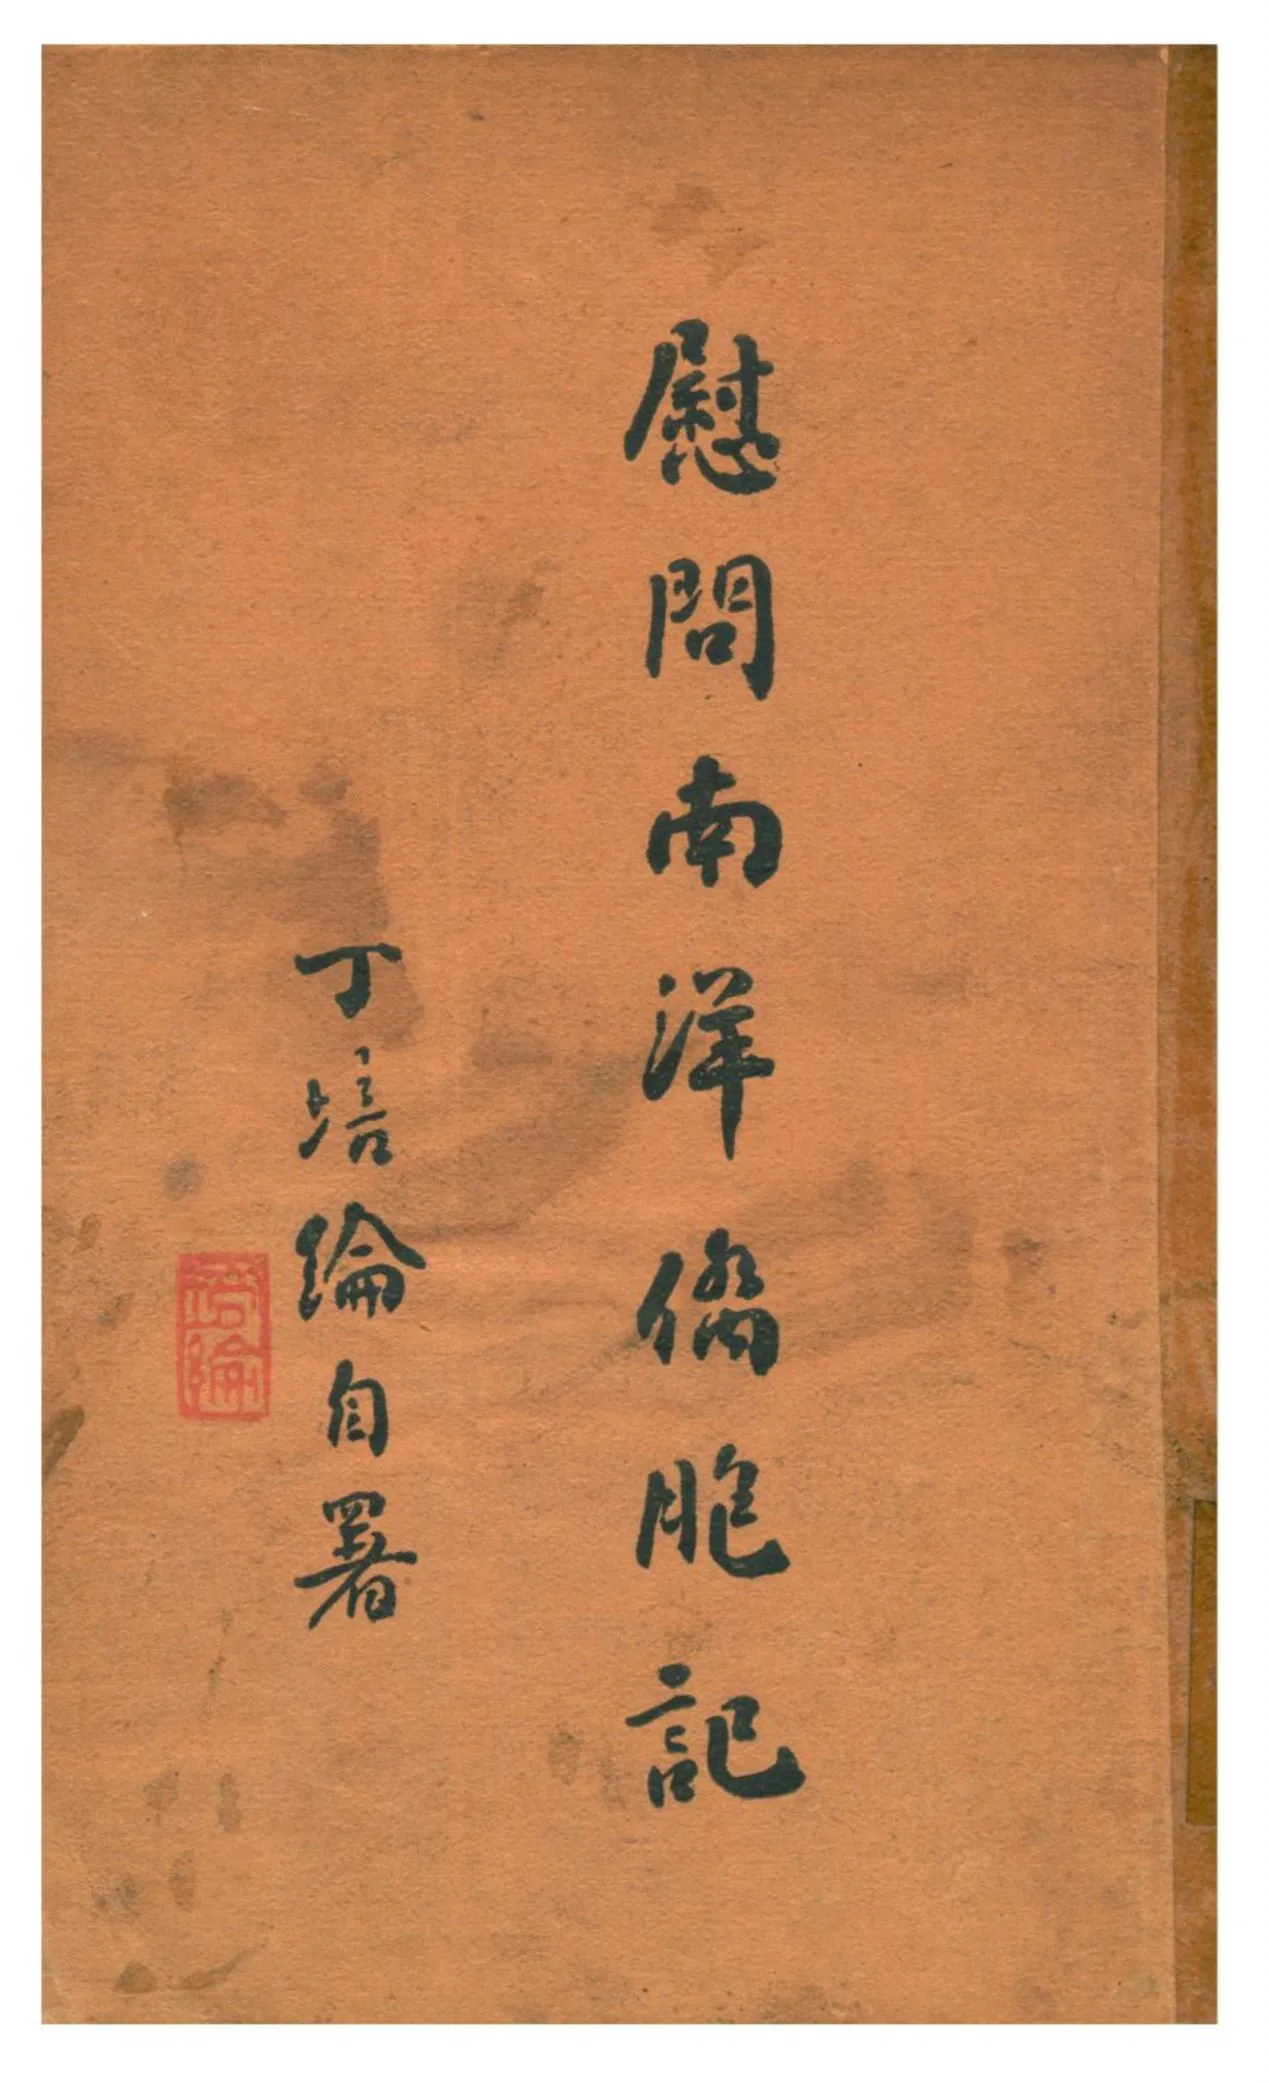 慰問南洋僑胞記
丁培綸自署